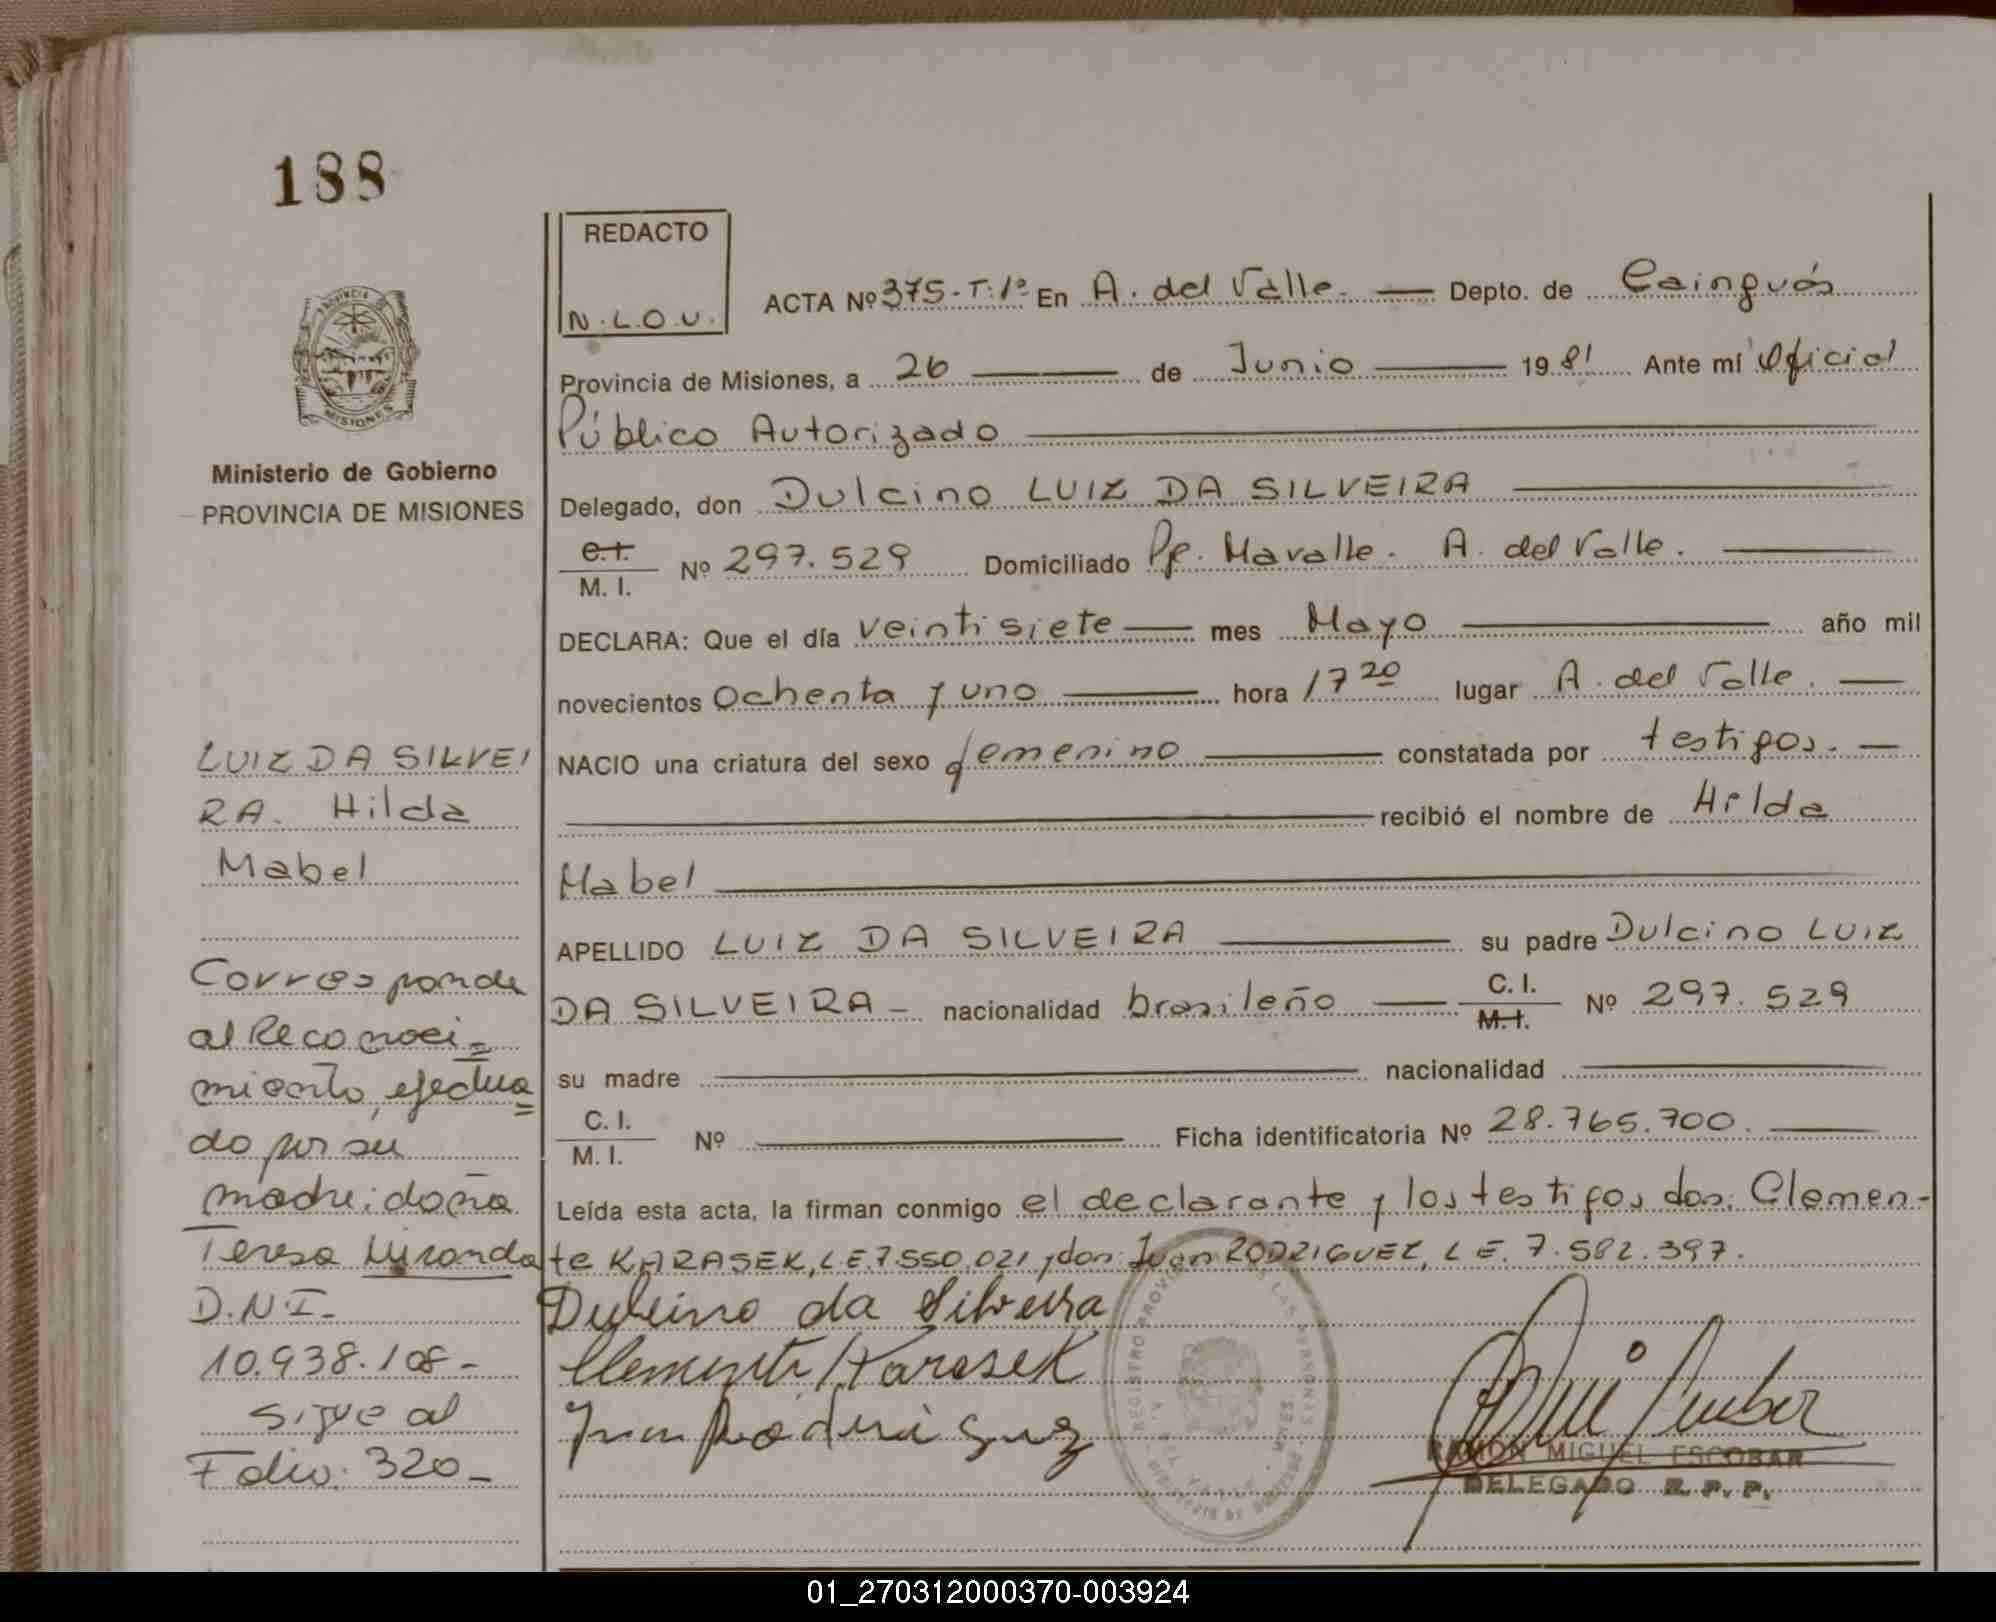 188
REDACTO
N.L.O.U.
ACTA Nº 375-T:1º En A. del Valle. Depto. de Cainguás
Provincia de Misiones, a 26 de Junio 1981 Ante mí Oficial
Público Autorizado
Delegado, don Dulcino LUIZ DA SILVEIRA
C.I. M. I. Nº 297.529 Domiciliado Pje. Mavalle. A. del Valle.
DECLARA: Que el día veintisiete mes Mayo año mil
novecientos ochenta y uno hora 17 20 lugar A. del Valle.
NACIO una criatura del sexo femenino constatada por testigos.
recibió el nombre de Hilda
Mabel
APELLIDO LUIZ DA SILVEIRA su padre Dulcino LUIZ
DA SILVEIRA - nacionalidad brasileño C. I. M.I. Nº 297.529
su madre nacionalidad
C. I. M. I. Nº Ficha identificatoria Nº 28.765.700.
Leída esta acta, la firman conmigo el declarante y los testigos don: Clemen-
te KARASEK, L.E. 7.550.021 y don: Juan RODRIGUEZ, L E. 7.582.397.
Dulcino da Silveira
Clemente Karasek
Juan Rodriguez
RAMON MIGUEL ESCOBAR
DELEGADO R. P. P.
MISIONES
Ministerio de Gobierno
PROVINCIA DE MISIONES
LUIZ DA SILVEI
RA. Hilda
Mabel
Corresponde
al Reconoci=
miento, efectua=
do por su
madre: doña
Teresa Miranda
D.N.I-
10.938.108-
sigue al
Folio: 320-
01_270312000370-003924